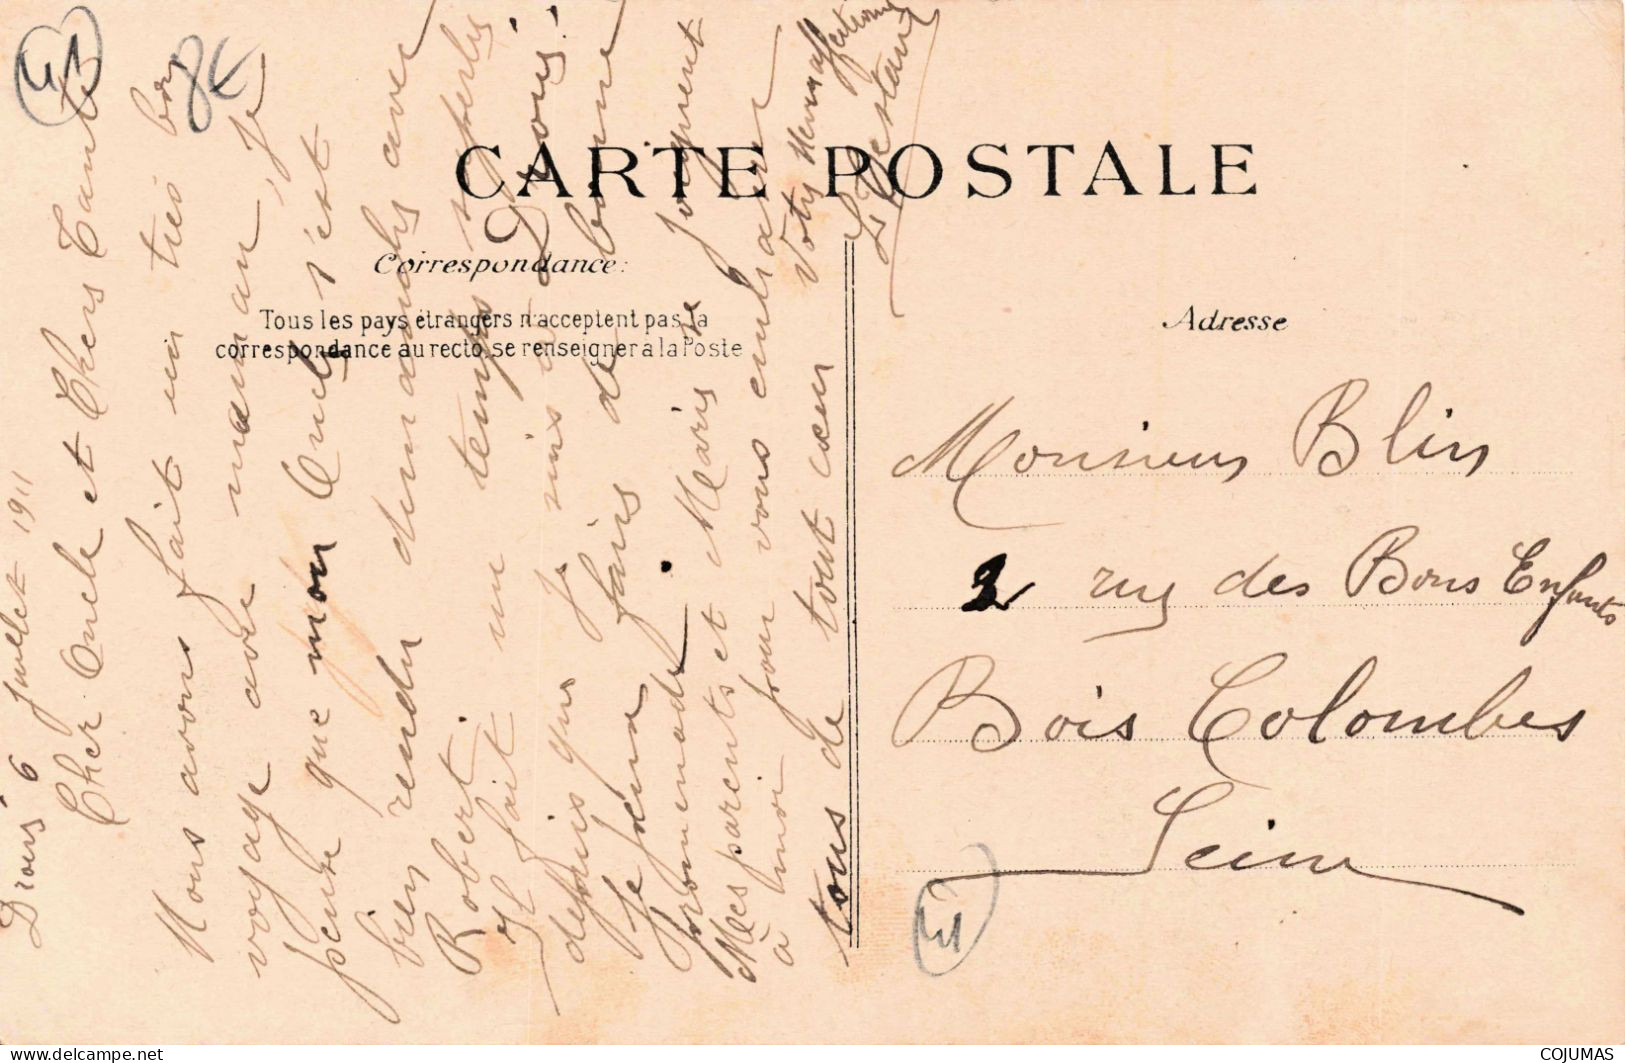 CARTE POSTALE
Correspondance:
Tous les pays étrangers n'acceptent pas la
correspondance au recto, se renseigner à la Poste
Adresse
Drouy 6 juillet 1911
Cher Oncle et Chers Tante
Nous avons fait un très bon
voyage avec maman, je
pense que mon Oncle s'est
bien rendu dimanche avec
Robert
Il fait un temps superbe
depuis que je suis à Drouy!
Je ferai de bonne
promenade
Mes parents et Marie se joignent
à moi pour vous embrasser
tous de tout cœur
Votre neveu affectionné
Monsieur Blin
2 rue des Bons Enfants
Bois Colombes
Seine
COJUMAS